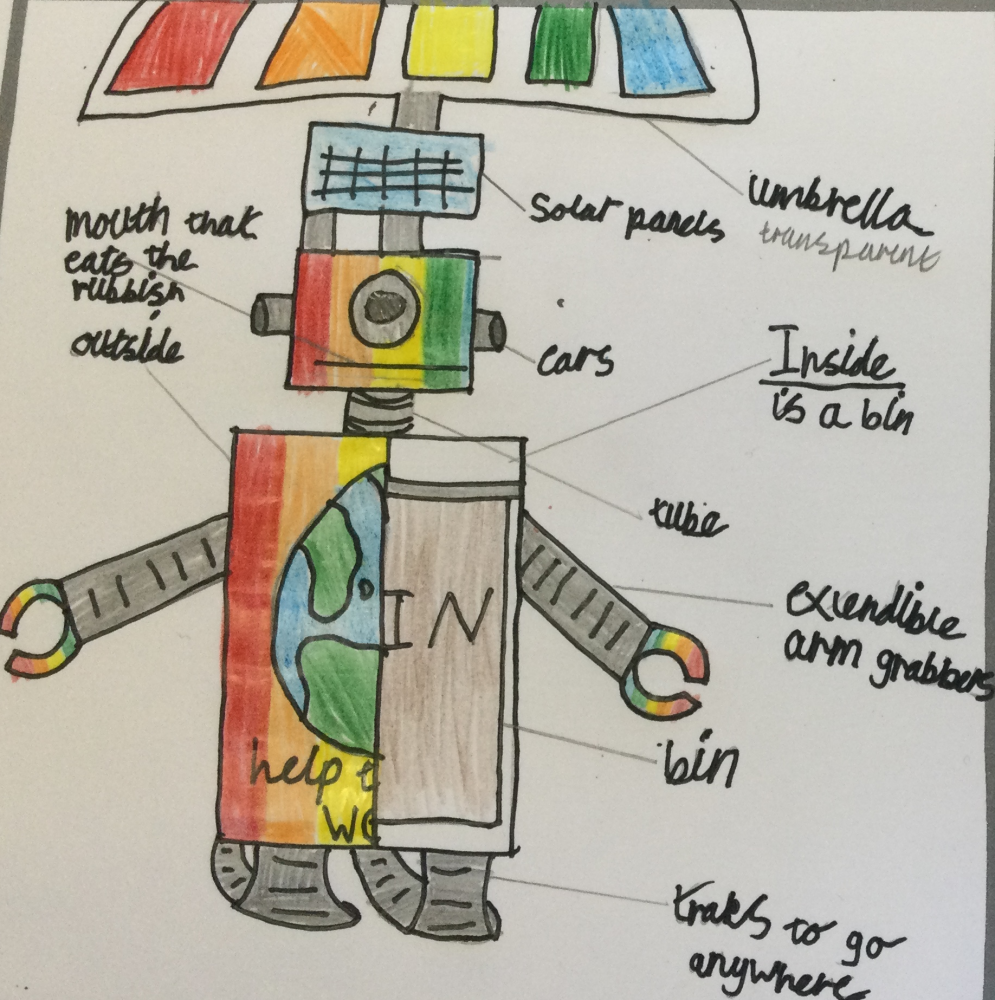 umbrella
transparent
solar panels
mouth that
eats the
rubbish
outside
ears
Inside
is a bin
tube
exendible
arm grabbers
IN
bin
help t
we
traks to go
anywhere